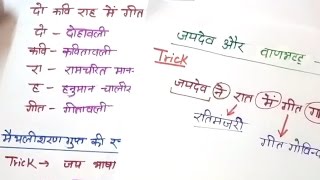 दो कवि राह में गीत
दो - दोहावली
कवि - कवितावली
रा - रामचरित मानस
ह - हनुमान चालीसा
गीत - गीतावली
मैथलीशरण गुप्त की
Trick → जय भाषा
जयदेव और बाणभट्ट
Trick
जयदेव ने रात में गीत
रतिमंजरी
गीत गोविन्द